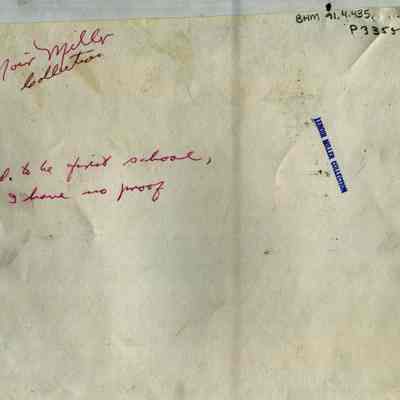 Miller
Collection
BHM 91.4.435.
P335
LENOIR MILLER COLLECTION
to be first school,
I have no proof